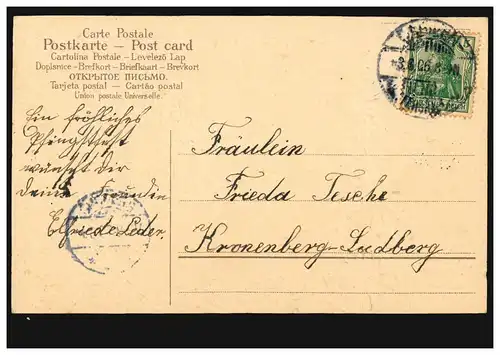 Carte Postale
Postkarte – Post card
Cartolina Postale – Levelező Lap
Dopisnice – Brefkort – Briefkaart – Brevkort
ОТКРЫТОЕ ПИСЬМО.
Tarjeta postal – Cartão postal
Union postale Universelle.
Ein fröhliches
Pfingstfest
wünscht dir
deine Freundin
Elfriede Leder.
Fräulein
Frieda Tesche
Kronenberg-Sudberg
5